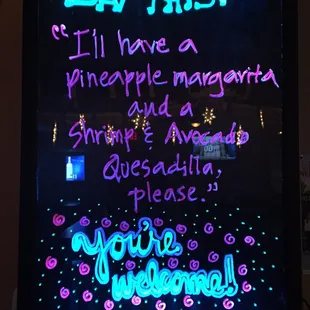 THIS!
"I'll have a
pineapple margarita
and a
Shrimp & Avocado
Quesadilla,
please."
you're
welcome!